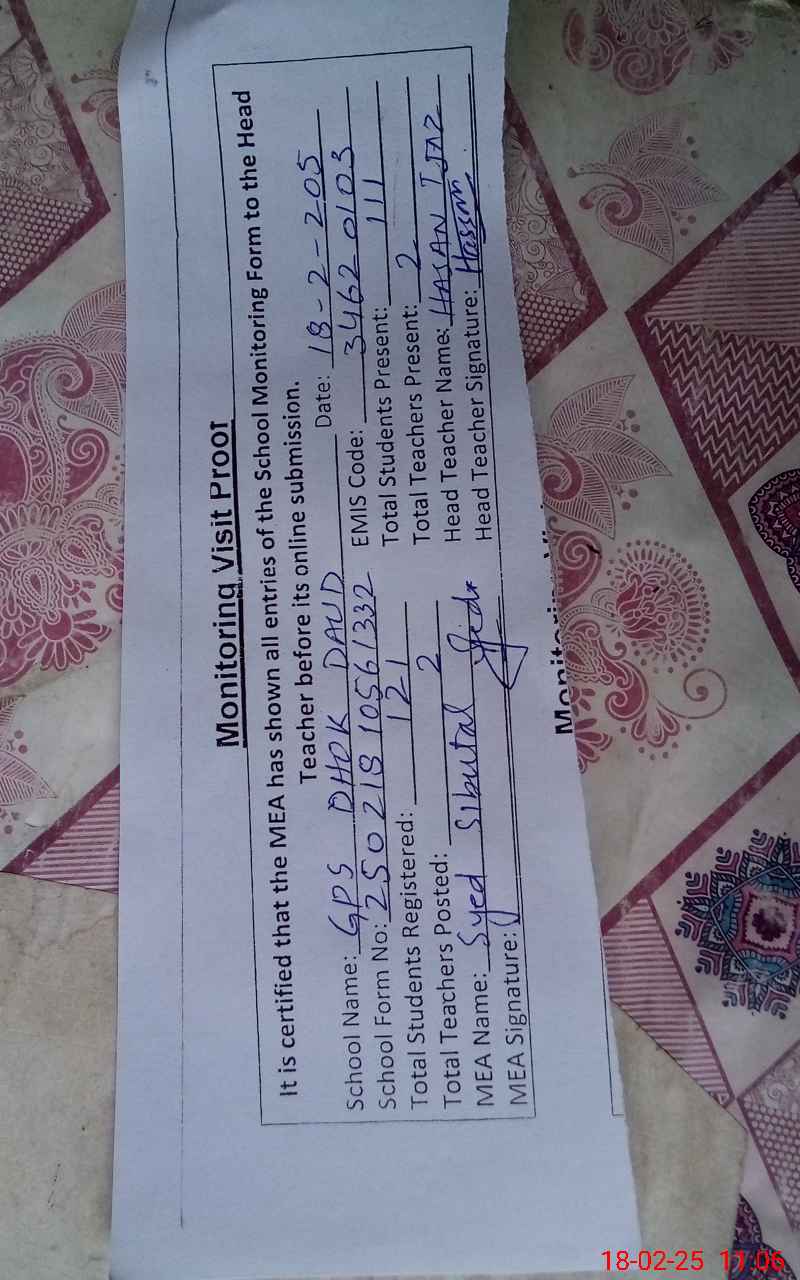 Monitoring Visit Proof
It is certified that the MEA has shown all entries of the School Monitoring Form to the Head
Teacher before its online submission.
School Name: GPS DHOK DAUD Date: 18-2-205
School Form No: 250218 10561332 EMIS Code: 34620103
Total Students Registered: 121 Total Students Present: 111
Total Teachers Posted: 2 Total Teachers Present: 2
MEA Name: Syed Sibutal Head Teacher Name: HASAN IJAZ
MEA Signature: Head Teacher Signature: Hassan
Monitoring Vi
18-02-25 11:06